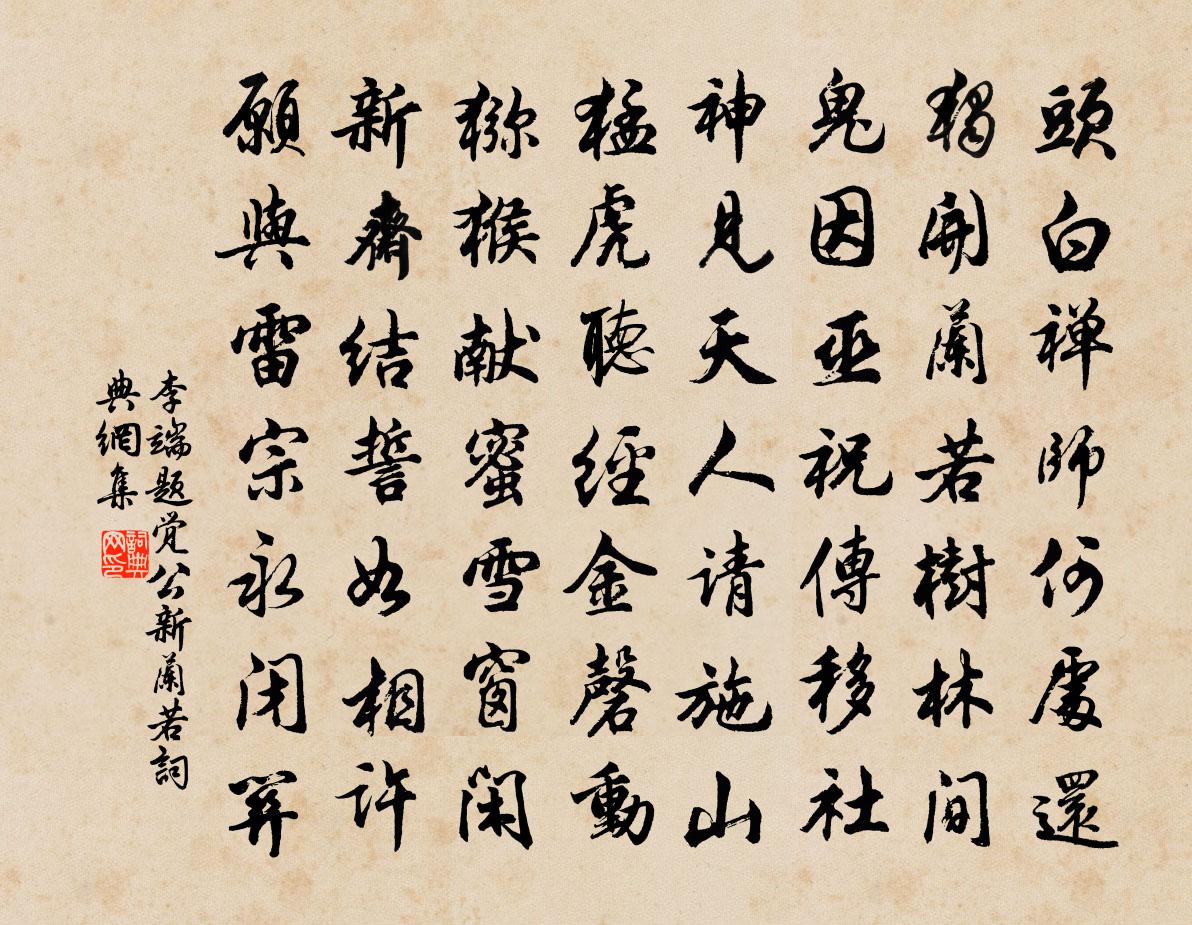 頭白禅師何處還
獨開蘭若樹林間
鬼因巫祝傳移社
神見天人请施山
猛虎聽經金磬動
猕猴献蜜雪窗閑
新齋結誓如相許
願與雷宗永闭關
李端題觉公新蘭若詞
典網集
詞典
网印